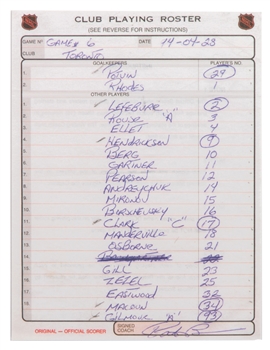 CLUB PLAYING ROSTER
(SEE REVERSE FOR INSTRUCTIONS)
GAME Nº GAME# 6 DATE
CLUB TORONTO
GOALKEEPERS PLAYER'S NO.
POTVIN 29
RHODES 1
OTHER PLAYERS
LEFEBVRE 2
HOUSE "A" 3
ELLET 4
HENDRICKSON 9
BERG 10
GARTNER 11
PEARSON 12
ANDREYCHUK 14
MIRONOV 15
BERCHEVSKY 16
CLARK "C" 17
MANDERVILLE 18
OSBORNE 21
GILL 23
ZEZEL 25
EASTWOOD 32
MACOUN 34
GILMOUR "A" 93
ORIGINAL – OFFICIAL SCORER SIGNED COACH